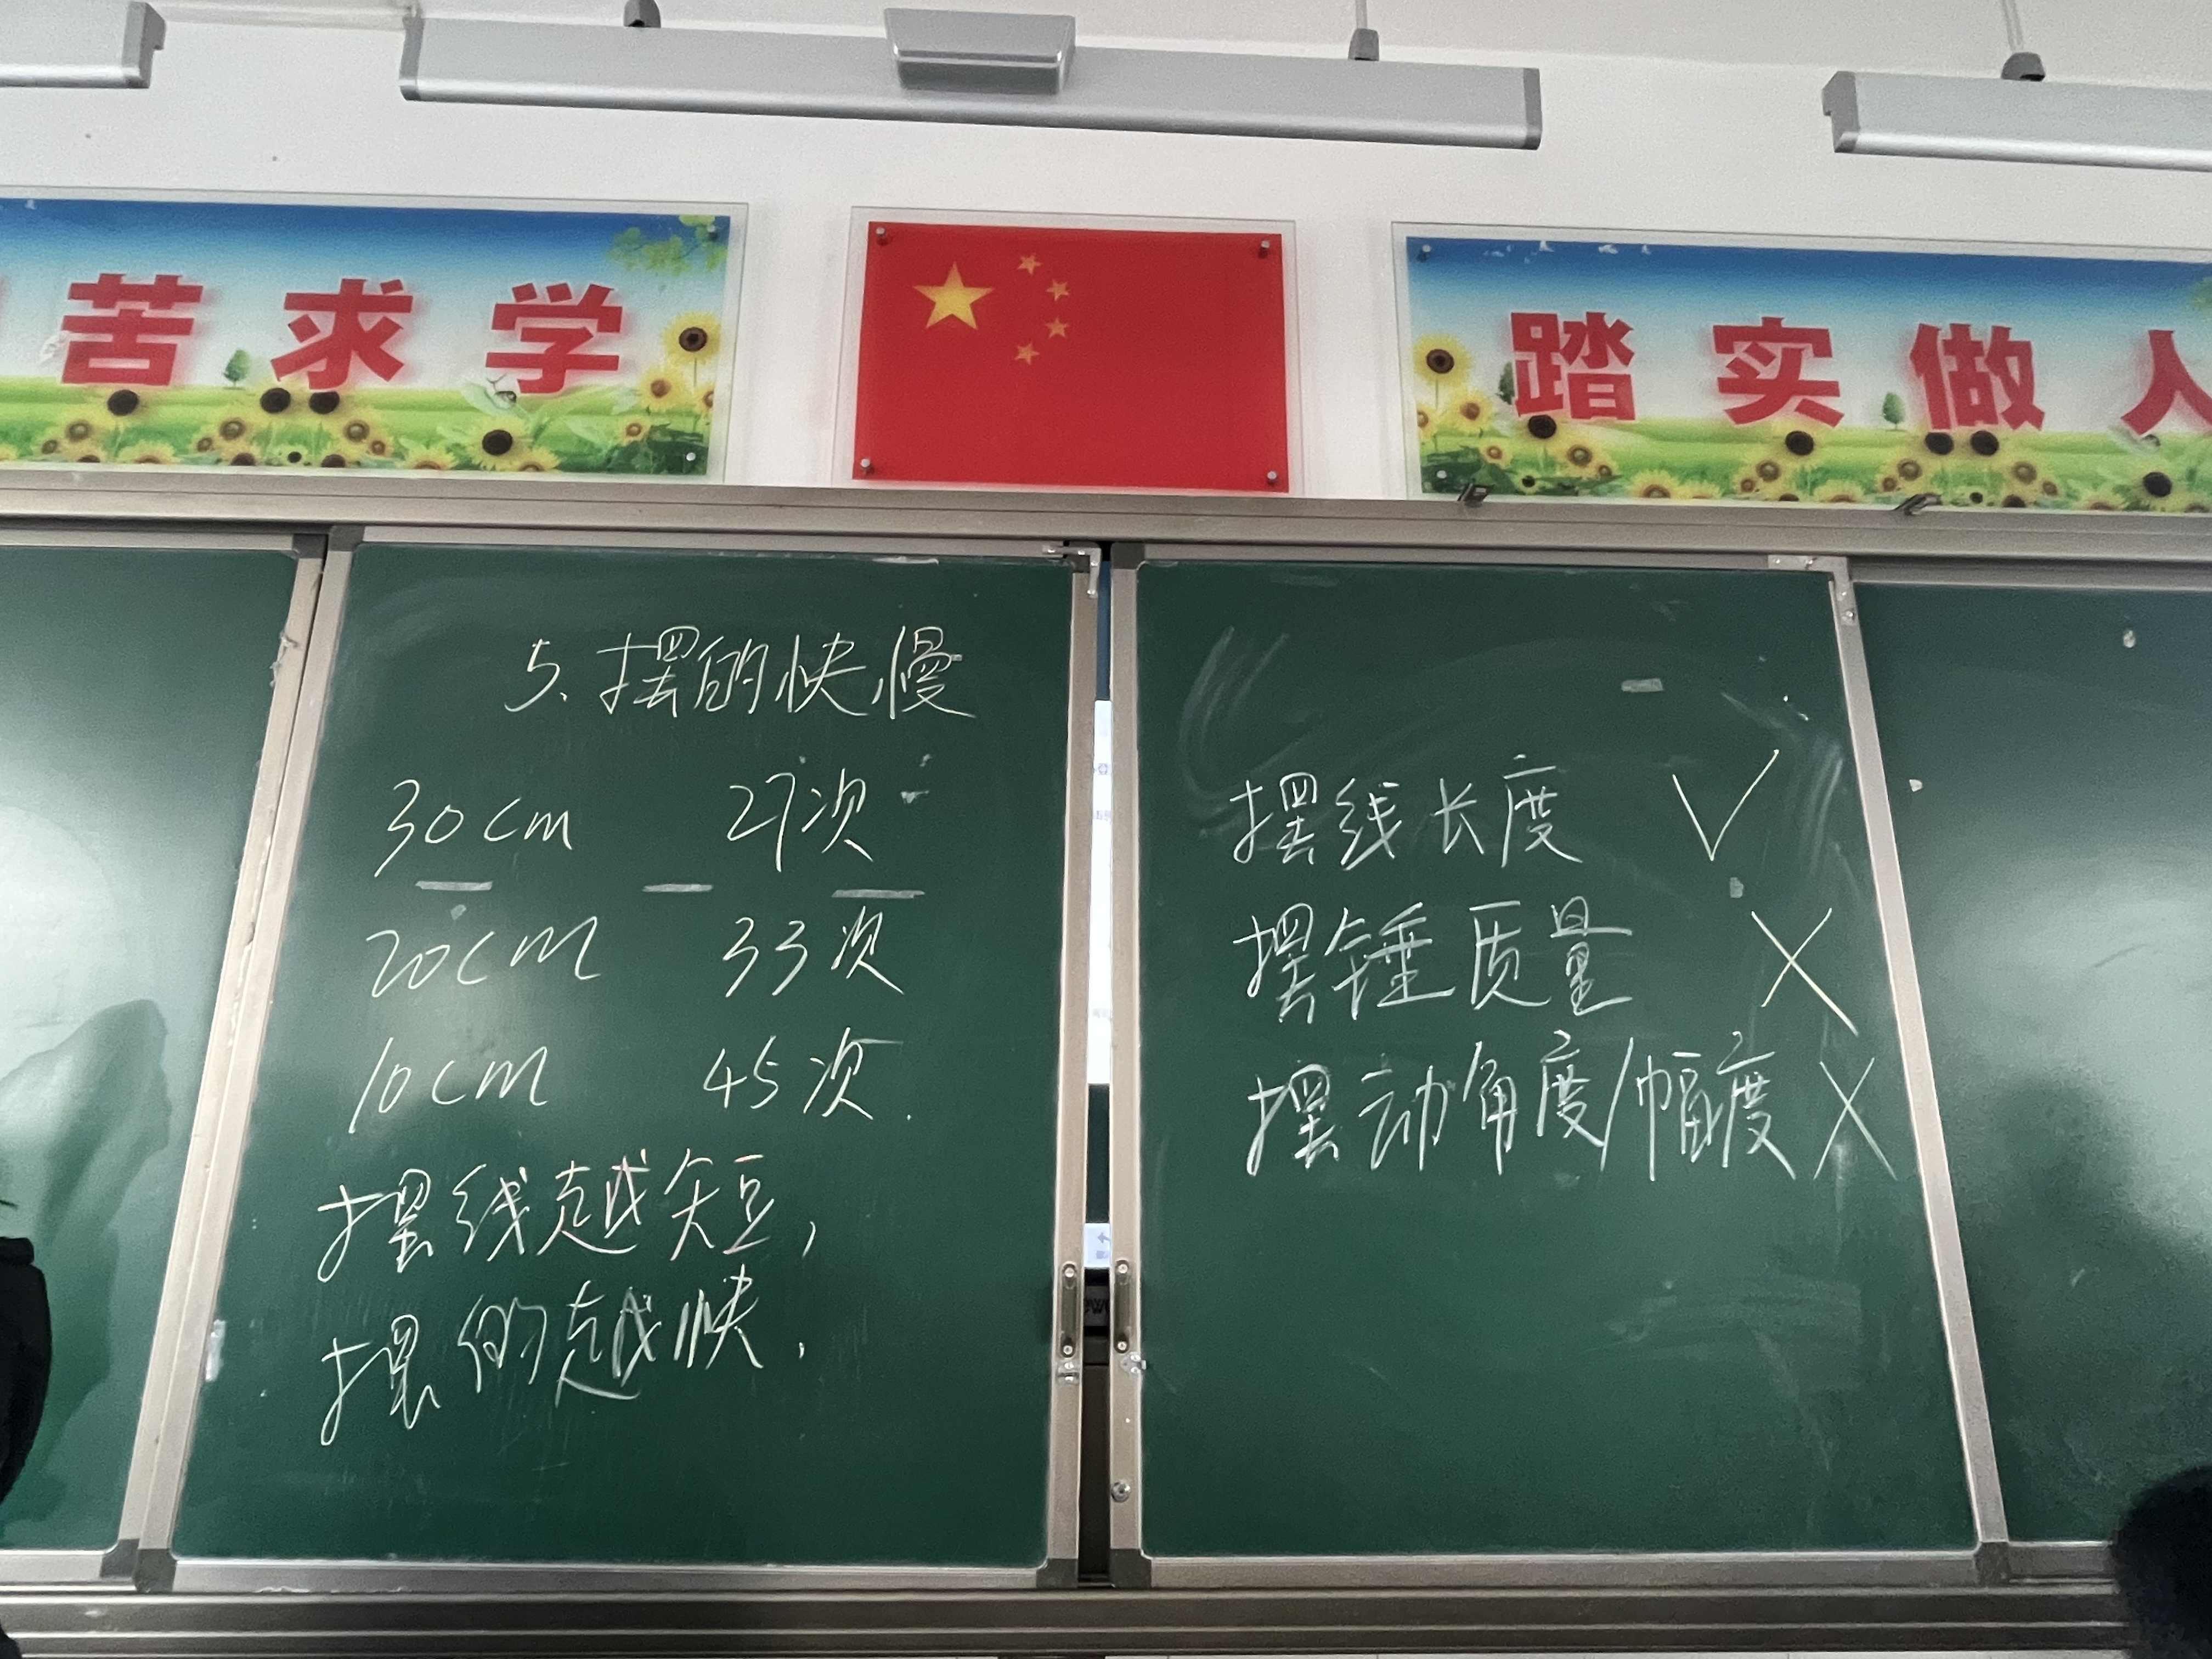 苦求学
踏实做人
5.摆的快慢
30cm 27次
20cm 33次
10cm 45次.
摆线越短,
摆的越快.
摆线长度 √
摆锤质量 ×
摆动角度/幅度 ×